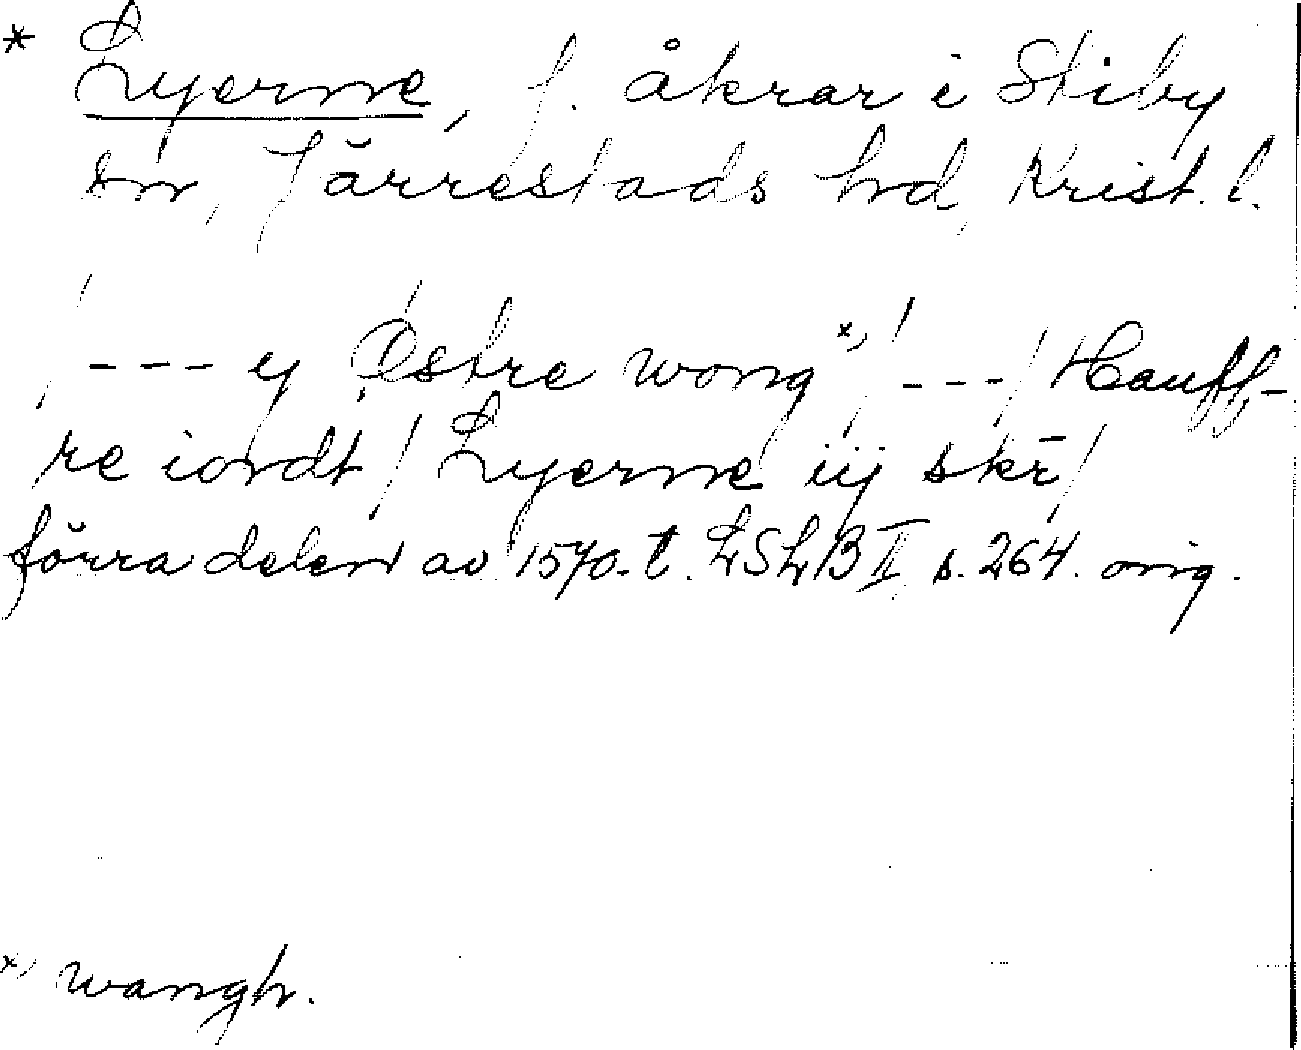 * Lyerne, f. åkrar i Stiby
sn, Järrestads hrd, Krist. l.
/ --- y Østre wong x) / --- / Hauff-
re iordt / Lyerne iij skr̄ /
förra delen av 1570-t. LSLB II s. 264. orig.
x) wangh.